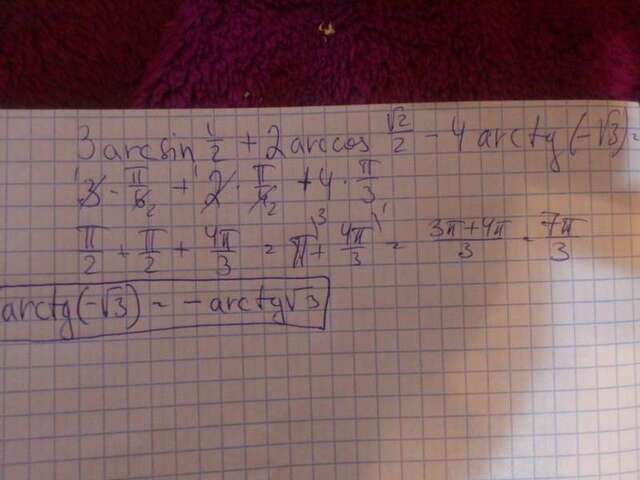 3 arcsin 1/2 + 2 arccos √2/2 - 4 arctg(-√3) =
3 · π/6 + 2 · π/4 + 4 · π/3
π/2 + π/2 + 4π/3 = π + 4π/3 = (3π+4π)/3 = 7π/3
arctg(-√3) = -arctg√3